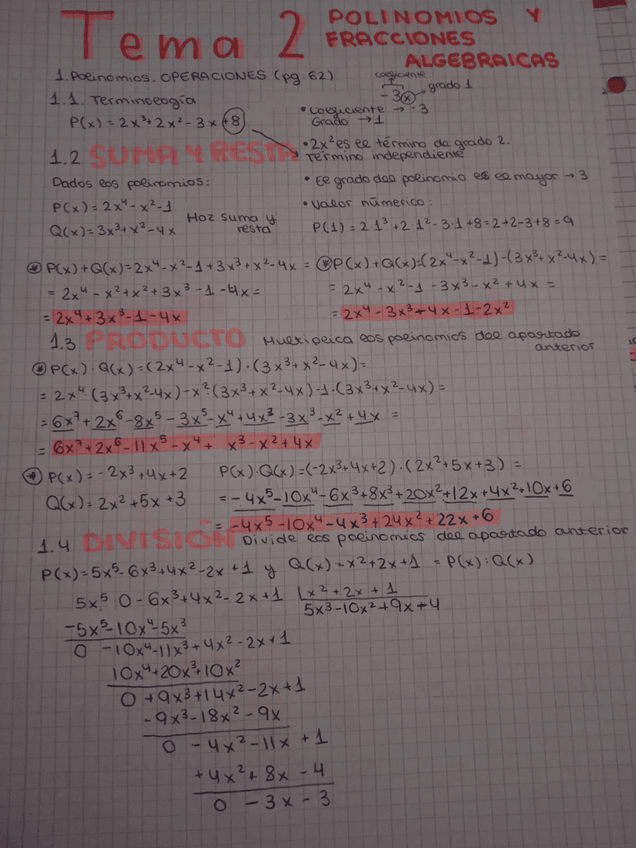 Tema 2 POLINOMIOS Y
FRACCIONES
ALGEBRAICAS
1. Polinomios. OPERACIONES (pg. 62)
coeficiente
-3x → grado 1
1.1. Terminología
• Coeficiente → -3
Grado → 1
P(x) = 2x³+2x²-3x+8
• 2x² es el término de grado 2.
Término independiente
1.2 SUMA Y RESTA
Dados los polinomios:
• El grado del polinomio es el mayor → 3
P(x) = 2x⁴-x²-1
Q(x) = 3x³+x²-4x
Haz suma y
resta
• Valor númerico:
P(1) = 2·1³+2·1²-3·1+8=2+2-3+8=9
* P(x)+Q(x)=2x⁴-x²-1+3x³+x²-4x =
= 2x⁴-x²+x²+3x³-1-4x=
= 2x⁴+3x³-1-4x
* P(x)+Q(x)=(2x⁴-x²-1)-(3x³+x²-4x)=
= 2x⁴-x²-1-3x³-x²+4x =
= 2x⁴-3x³+4x-1-2x²
1.3 PRODUCTO Multiplica los polinomios del apartado
anterior
* P(x)·Q(x)=(2x⁴-x²-1)·(3x³+x²-4x)=
= 2x⁴·(3x³+x²-4x)-x²·(3x³+x²-4x)-1·(3x³+x²-4x)=
= 6x⁷+2x⁶-8x⁵-3x⁵-x⁴+4x³-3x³-x²+4x =
= 6x⁷+2x⁶-11x⁵-x⁴+ x³-x²+4x
* P(x)=-2x³+4x+2 P(x)·Q(x)=(-2x³+4x+2)·(2x²+5x+3) =
Q(x)=2x²+5x+3 = -4x⁵-10x⁴-6x³+8x³+20x²+12x+4x²+10x+6
= -4x⁵-10x⁴-4x³+24x²+22x+6
1.4 DIVISIÓN Divide los polinomios del apartado anterior
P(x)=5x⁵-6x³+4x²-2x+1 y Q(x)=x²+2x+1 = P(x):Q(x)
5x⁵ 0 -6x³+4x²-2x+1 x²+2x+1
5x³-10x²+9x+4
-5x⁵-10x⁴-5x³
0 -10x⁴-11x³+4x²-2x+1
10x⁴+20x³+10x²
0 +9x³+14x²-2x+1
-9x³-18x²-9x
0 -4x²-11x +1
+4x²+8x -4
0 -3x -3